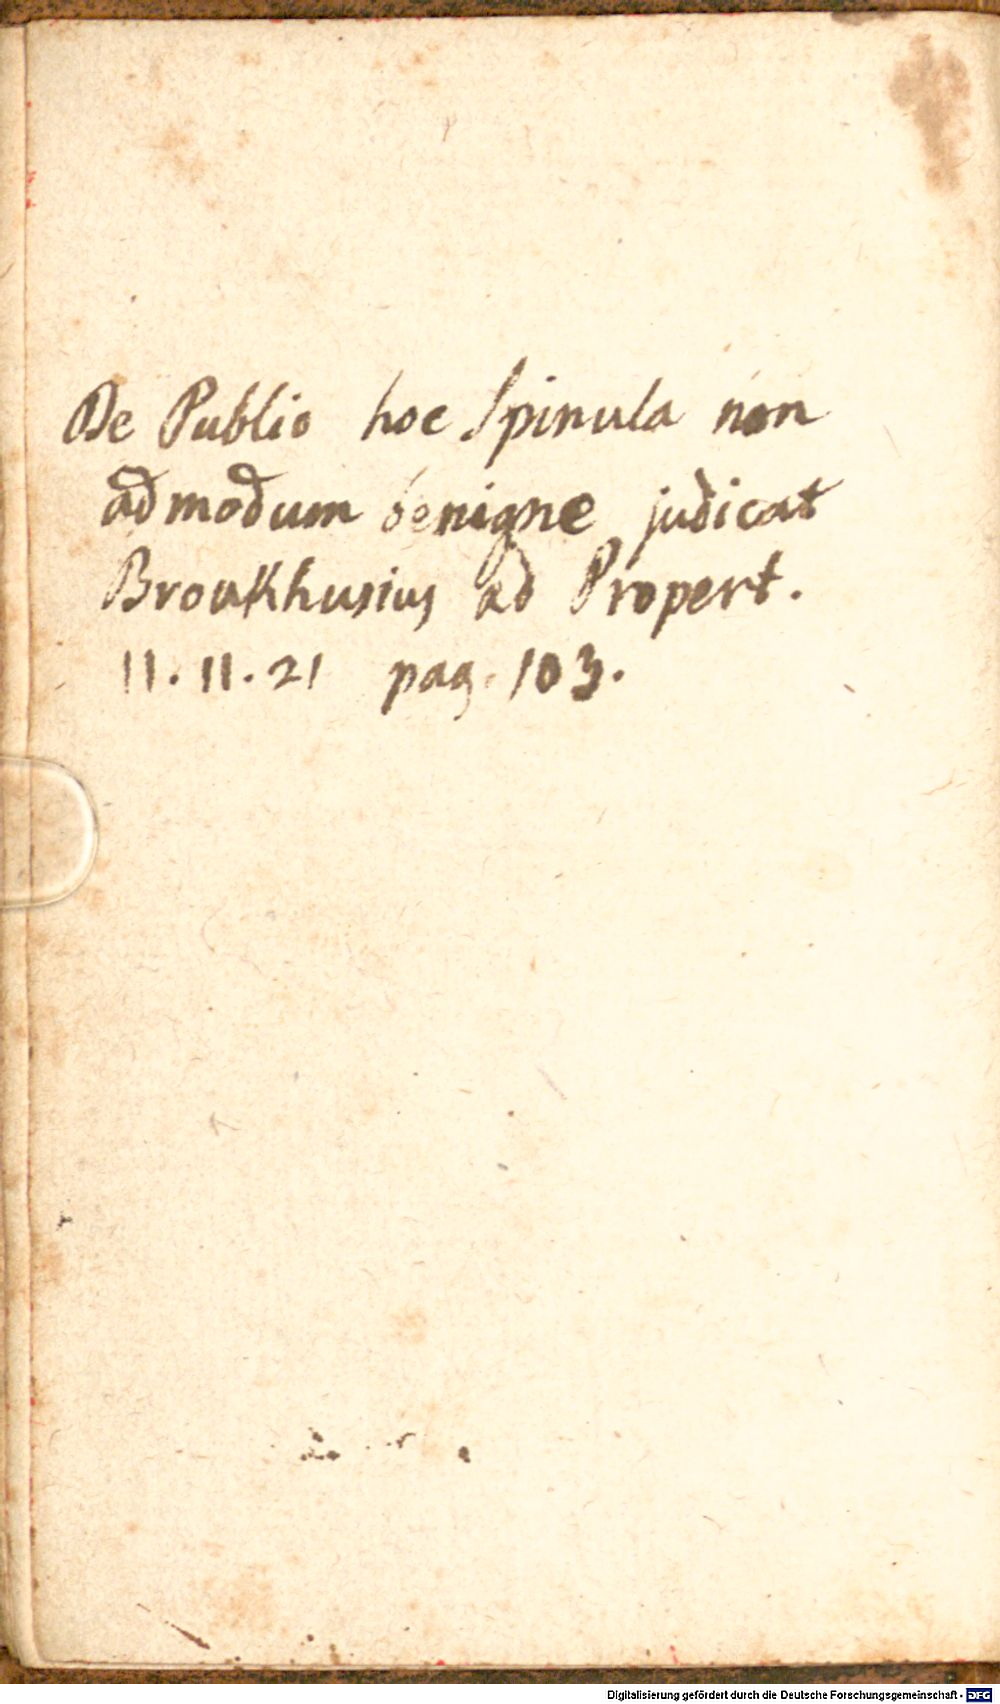 De Publio hoc Spinula non
admodum benigne judicat
Broukhusius ad Propert.
11. 11. 21 pag. 103.
Digitalisierung gefördert durch die Deutsche Forschungsgemeinschaft - DFG